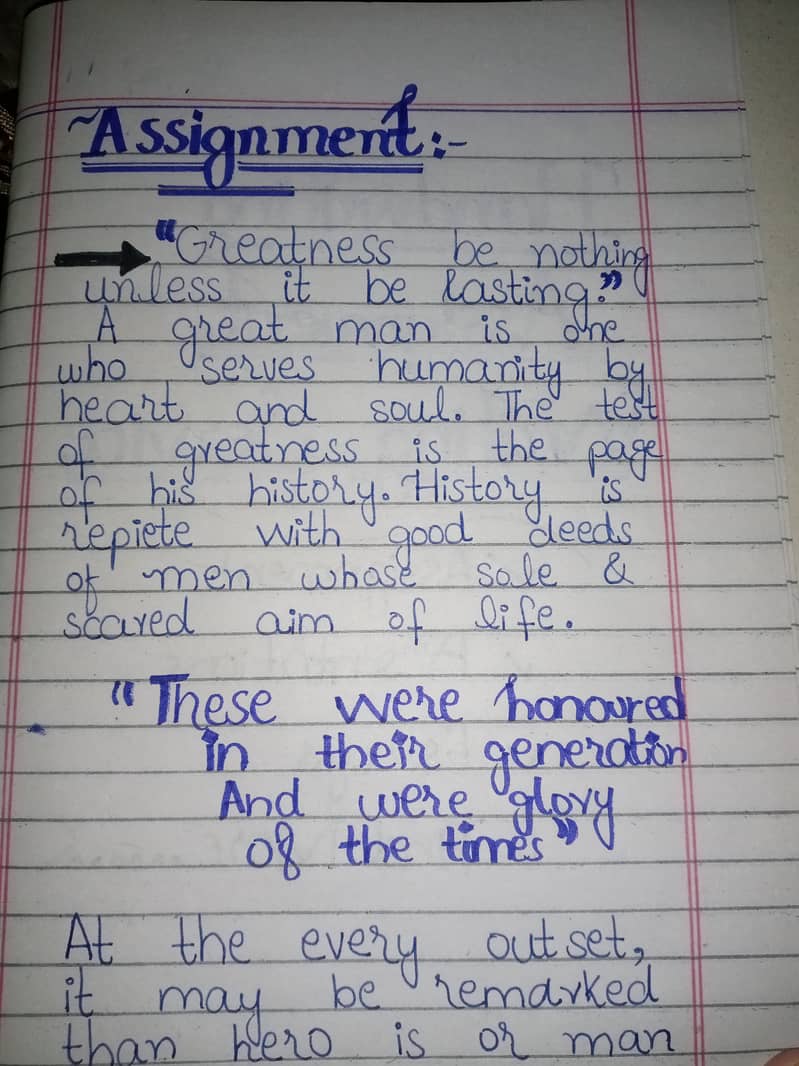 ~Assignment:-
"Greatness be nothing
unless it be lasting."
A great man is one
who serves humanity by
heart and soul. The test
of greatness is the page
of his history. History is
repiete with good deeds
of men whose sale &
scared aim of life.
"These were honoured
in their generation
And were glory
of the times"
At the every outset,
it may be remarked
than hero is or man